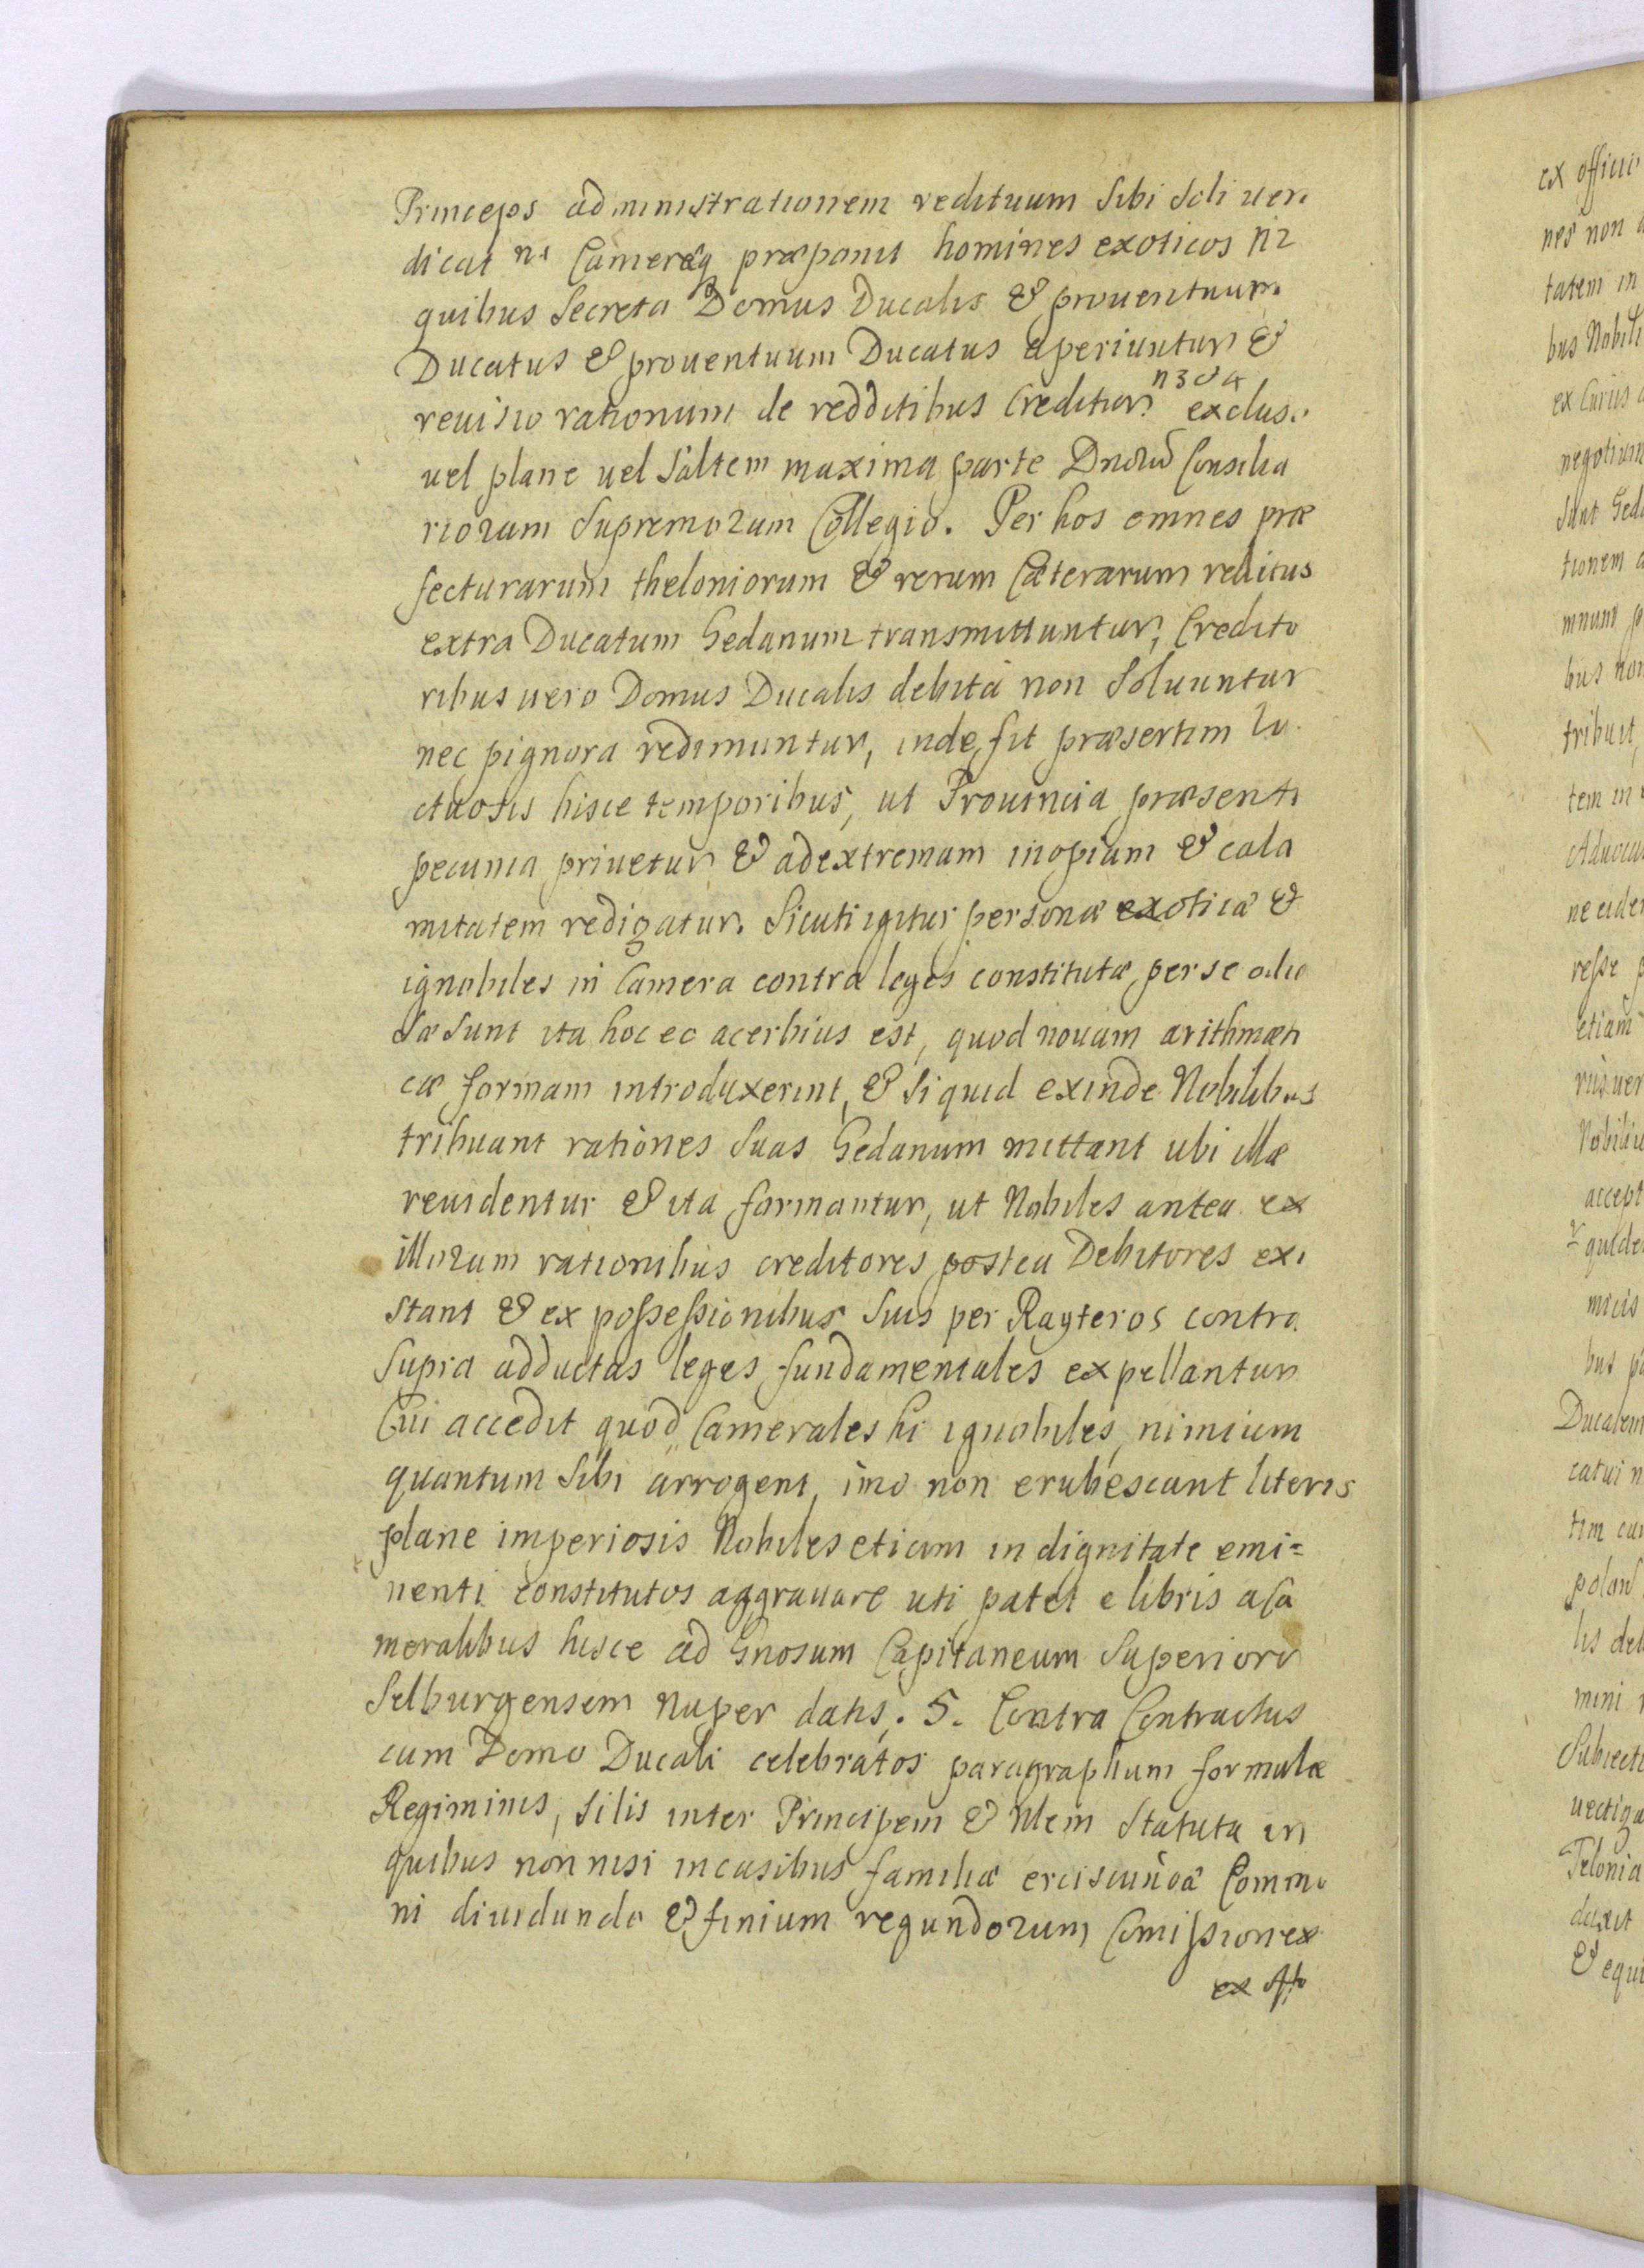 Princeps administrationem redituum sibi soli uen
dicat n1 Cameræq præponit homines exoticos n2
quibus secreta Domus Ducalis & prouentuum
Ducatus & prouentuum Ducatus aperiuntur &
reuisio rationum de redditibus Creditur n3 & 4 exclus.
uel plane uel saltem maxima parte Dnorū Consilia
riorum Supremorum Collegio. Per hos omnes præ
fecturarum theloniorum & rerum Cæterarum reditus
extra Ducatum Gedanum transmittuntur, Credito
ribus uero Domus Ducalis debita non Soluuntur
nec pignora redimuntur, inde fit præsertim lu
ctuosis hisce temporibus, ut Prouincia præsenti
pecunia priuetur & ad extremam inopiam & cala
mitatem redigatur. Sicuti igitur personæ exoticæ &
ignobiles in Camera contra leges constitutæ per se odio
sæ sunt ita hoc eo acerbius est, quod nouam arithmæti
cæ formam introduxerint, & si quid exinde Nobilibus
tribuant rationes suas Gedanum mittant ubi illæ
reuidentur & ita formantur, ut Nobiles antea ex
illorum rationibus creditores postea Debitores exi
stant & ex possessionibus suis per Rayteros contra
supra adductas leges fundamentales expellantur
Cui accedit quod Camerales hi ignobiles, nimium
quantum sibi arrogent, imo non erubescant literis
plane imperiosis Nobiles etiam in dignitate emi=
nenti constitutos aggrauare uti patet e libris a Ca
meralibus hisce ad Gnosum Capitaneum Superiorē
Selburgensem nuper datis. 5. Contra Contractus
cum Domo Ducali celebratos paragraphum formulæ
Regiminis, silis inter Principem & Nlem Statuta in
quibus non nisi in casibus familiæ erciscundæ Commu
ni diuidundo & finium regundorum Comissiones
ex offo
ex officio
nes non
tatem in
bus Nobili
ex Curiis
negotium
sunt Geda
tionem
mnum
bus
tribuit,
tem in
Aduoca
resse
etiam
riis uer
Nobiliu
accept
quide
micis
bus
Ducalem
catui
tim
polon
lis
mini
Subiecti
uectiga
Telonia
duxit
& equi